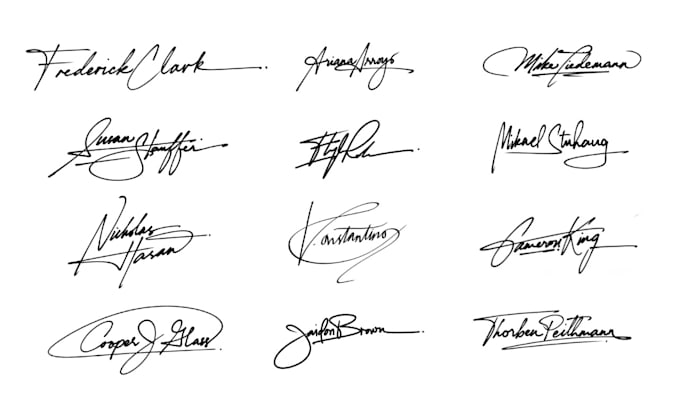 Frederick Clark
Ariana Arroyo
Mike Tiedemann
Susan
Stauffer
Mikael Stuhaug
Nicholas
Hasan
Konstantinos
Cameron King
Cooper J Glass
Jaidon Brown
Thorben Peithmann